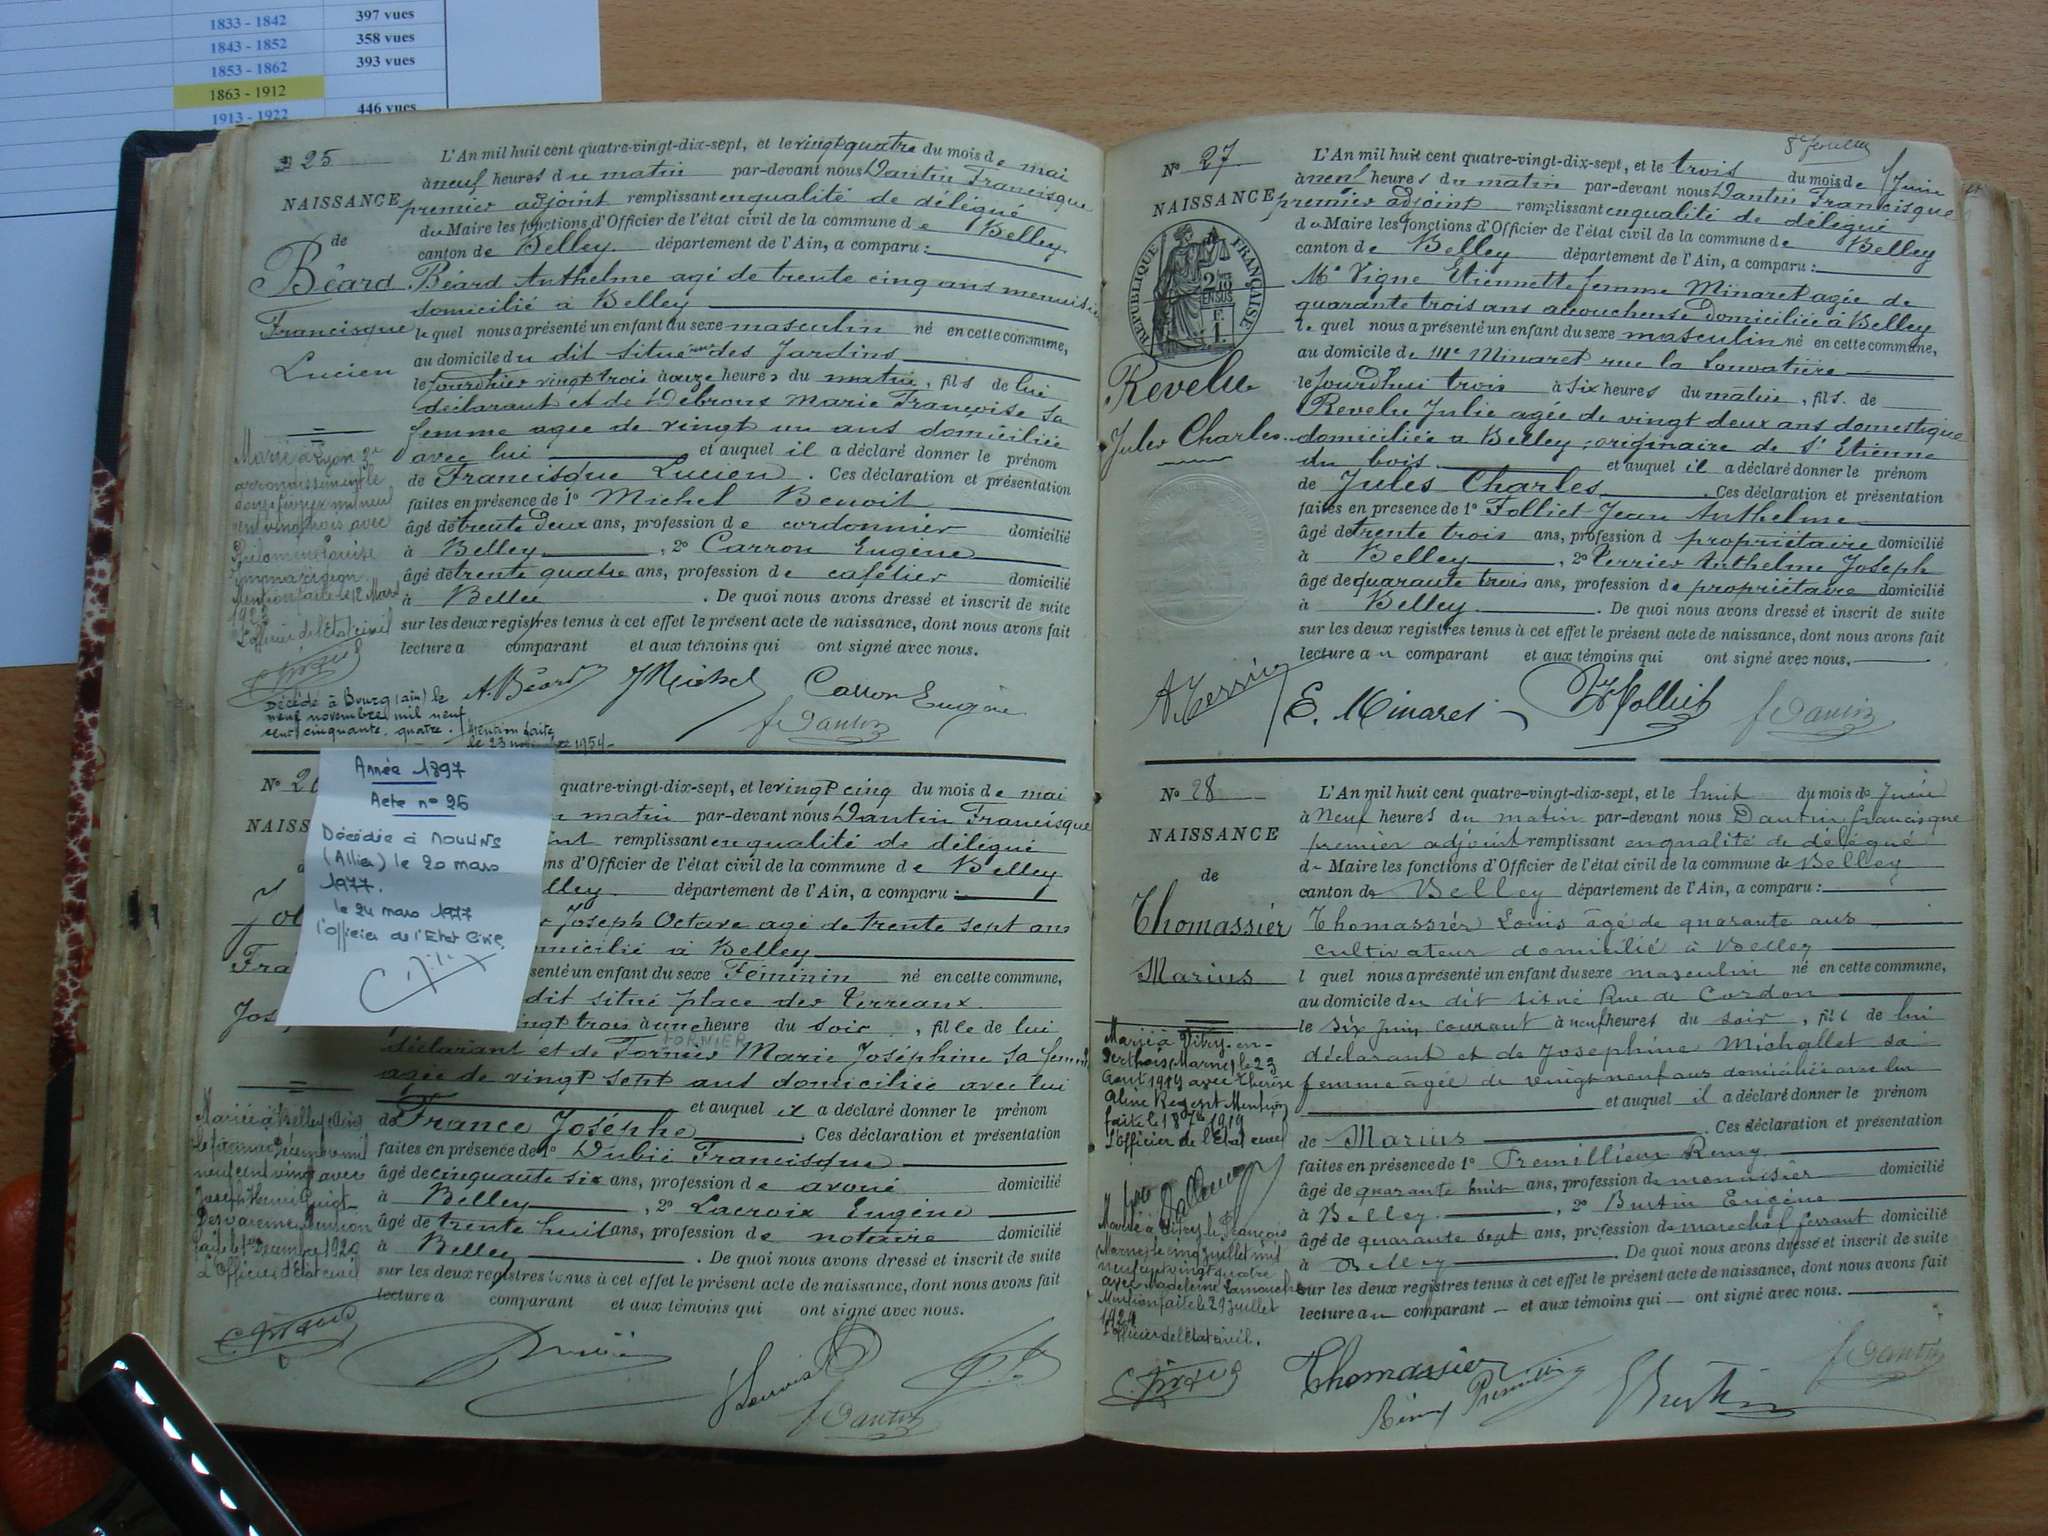 1833 - 1842 397 vues
1843 - 1852 358 vues
1853 - 1862 393 vues
1863 - 1912
1913 - 1922 446 vues
25
NAISSANCE
de
Béard
Francisque
Lucien
L'An mil huit cent quatre-vingt-dix-sept, et le vingt quatre du mois de mai
à neuf heures du matin par-devant nous Dantin Francisque
premier adjoint remplissant en qualité de délégué
du Maire les fonctions d'Officier de l'état civil de la commune de Belley
canton de Belley département de l'Ain, a comparu :
Béard Anthelme agé de trente cinq ans menuisier
domicilié à Belley
le quel nous a présenté un enfant du sexe masculin né en cette commune,
au domicile du dit situé rue des Jardins
le jourd'hier vingt trois à onze heures du matin, fils de lui
déclarant et de Marie Françoise sa
femme agée de vingt un ans domiciliée
avec lui et auquel il a déclaré donner le prénom
de Francisque Lucien. Ces déclaration et présentation
faites en présence de 1º Michel Benoit
âgé de trente deux ans, profession de cordonnier domicilié
à Belley, 2º Carron Eugène
âgé de trente quatre ans, profession de cafetier domicilié
à Belley. De quoi nous avons dressé et inscrit de suite
sur les deux registres tenus à cet effet le présent acte de naissance, dont nous avons fait
lecture a comparant et aux témoins qui ont signé avec nous.
Marié à Lyon 2e
arrondissement le
février mil neuf
cent vingt trois avec
Philomène Louise
Mention faite le 12 Mars
1923
L'officier de l'état civil
A. Béard J Michel Carron Eugène
f Dantin
Décédé à Bourg (ain) le
neuf novembre mil neuf
cent cinquante quatre. Mention faite
le 23 novembre 1954
Année 1897
Acte nº 26
Décédée à MOULINS
(Allier) le 20 mars
1977.
le 24 mars 1977
l'officier de l'Etat Civil,
Nº
NAISS
quatre-vingt-dix-sept, et le vingt cinq du mois de mai
matin par-devant nous Dantin Francisque
remplissant en qualité de délégué
d'Officier de l'état civil de la commune de Belley
département de l'Ain, a comparu :
Joseph Octave agé de trente sept ans
domicilié à Belley
senté un enfant du sexe Féminin né en cette commune,
dit situé place des Terreaux
vingt trois à une heure du soir, fille de lui
FORNIER
déclarant et de Fornier Marie Joséphine sa femme
agée de vingt sept ans domiciliée avec lui
et auquel il a déclaré donner le prénom
de France Josèphe. Ces déclaration et présentation
faites en présence de 1º Dubié Francisque
âgé de cinquante six ans, profession de avoué domicilié
à Belley, 2º Lacroix Eugène
âgé de trente huit ans, profession de notaire domicilié
à Belley. De quoi nous avons dressé et inscrit de suite
sur les deux registres tenus à cet effet le présent acte de naissance, dont nous avons fait
lecture a comparant et aux témoins qui ont signé avec nous.
Mariée à Belley (Ain)
le premier Décembre mil
neuf cent vingt avec
Joseph
Mention
faite le 1er Decembre 1920
L'Officier d'Etat civil
f Dantin
8e feuillet
Nº 27
NAISSANCE
RÉPUBLIQUE FRANÇAISE
Revelu
Jules Charles
L'An mil huit cent quatre-vingt-dix-sept, et le trois du mois de Juin
à neuf heures du matin par-devant nous Dantin Francisque
premier adjoint remplissant en qualité de délégué
du Maire les fonctions d'Officier de l'état civil de la commune de Belley
canton de Belley département de l'Ain, a comparu :
Me Vigne Etiennette femme Minaret agée de
quarante trois ans acoucheuse domiciliée à Belley
le quel nous a présenté un enfant du sexe masculin né en cette commune,
au domicile de Me Minaret rue la
le jourd'hui trois à six heures du matin, fils de
Revelu Julie agée de vingt deux ans domestique
domiciliée à Belley, originaire de St Etienne
du bois et auquel il a déclaré donner le prénom
de Jules Charles. Ces déclaration et présentation
faites en présence de 1º Folliet Jean Anthelme
âgé de trente trois ans, profession d propriétaire domicilié
à Belley, 2º Perrier Anthelme Joseph
âgé de quarante trois ans, profession de propriétaire domicilié
à Belley. De quoi nous avons dressé et inscrit de suite
sur les deux registres tenus à cet effet le présent acte de naissance, dont nous avons fait
lecture au comparant et aux témoins qui ont signé avec nous.
E. Minaret f Dantin
Nº 28
NAISSANCE
de
Thomassiér
Marius
L'An mil huit cent quatre-vingt-dix-sept, et le huit du mois de Juin
à Neuf heures du matin par-devant nous Dantin francisque
premier adjoint remplissant en qualité de délégué
de Maire les fonctions d'Officier de l'état civil de la commune de Belley
canton de Belley département de l'Ain, a comparu :
Thomassiér Louis âgé de quarante ans
cultivateur domicilié à Belley
l quel nous a présenté un enfant du sexe masculin né en cette commune,
au domicile du dit situé Rue de Cordon
le six Juin courant à neuf heures du soir, fils de lui
déclarant et de Josephine Michallet sa
femme âgée de vingt neuf ans domiciliée avec lui
et auquel il a déclaré donner le prénom
de Marius. Ces déclaration et présentation
faites en présence de 1º Premillieu Remy
âgé de quarante huit ans, profession de menuisier domicilié
à Belley, 2º Burtin Eugène
âgé de quarante sept ans, profession de marechal ferrant domicilié
à Belley. De quoi nous avons dressé et inscrit de suite
sur les deux registres tenus à cet effet le présent acte de naissance, dont nous avons fait
lecture au comparant et aux témoins qui ont signé avec nous.
Marié à Vitry-en-
Perthois (Marne) le 23
Aout 1919 avec Therèse
Aline Mention
faite le 1919
L'Officier de l'Etat civil
Marié à Vitry le François
Marne, le cinq juillet mil
neuf cent vingt quatre
avec Madeleine Lamouche
Mention faite le 29 juillet
1924
Officier de l'état civil.
Thomassier
f Dantin